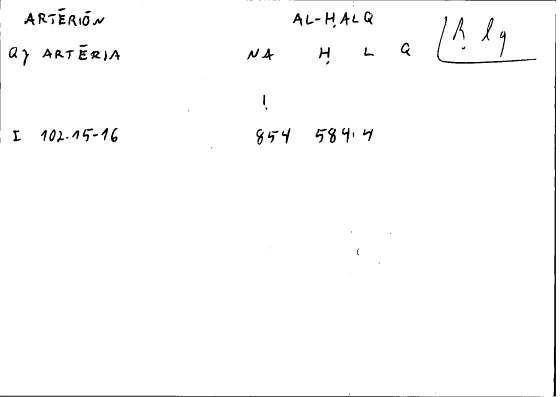 ARTĒRIÓN AL-ḤALQ ḥlq
Q) ARTĒRIA NA Ḥ L Q
!
I 102.15-16 854 584,4